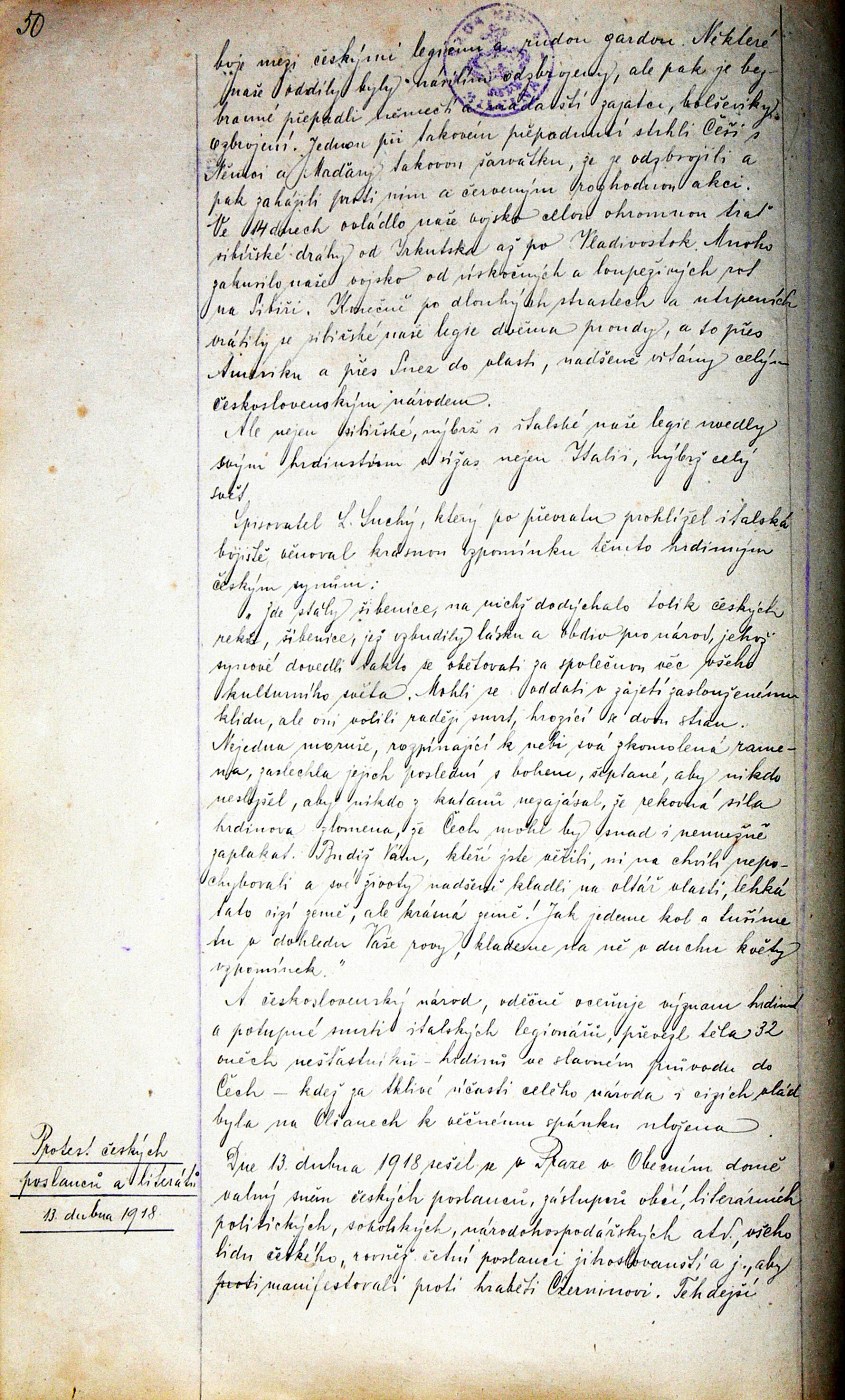 50
boje mezi českými legiemi a rudou gardou. Některé
naše oddíly byly násilím odzbrojeny, ale pak je bez-
branné přepadli němečtí a maďarští zajatci, bolševiky
ozbrojení. Jednou při takovém přepadnutí strhli Češi s
Němci a Maďary takovou šarvátku, že je odzbrojili a
pak zahájili proti nim a červeným rozhodnou akci.
Ve 14 dnech ovládlo naše vojsko celou ohromnou trať
sibiřské dráhy od Irkutska až po Vladivostok. Mnoho
zakusilo naše vojsko od úskočných a loupeživých rot
na Sibiři. Konečně po dlouhých strastech a utrpeních
vrátily se sibiřské naše legie dvěma proudy, a to přes
Ameriku a přes Suez do vlasti, nadšeně vítány celým
československým národem.
Ale nejen sibiřské, nýbrž i italské naše legie uvedly
svým hrdinstvím v úžas nejen Italii, nýbrž celý
svět.
Spisovatel L. Suchý, který po převratu prohlížel italská
bojiště, věnoval krásnou vzpomínku těmto hrdinným
českým synům:
"Zde stály šibenice, na nichž dodýchalo tolik českých
reků, šibenice, jež vzbudily lásku a obdiv pro národ, jehož
synové dovedli takto se obětovati za společnou věc všeho
kulturního světa. Mohli se oddati v zajetí zaslouženému
klidu, ale oni volili raději smrt, hrozící z dvou stran.
Nejedna moruše, rozpínající k nebi svá zkomolená rame-
na, zaslechla jejich poslední s bohem, šeptané, aby nikdo
neslyšel, aby nikdo z katanů nezajásal, že rekovná síla
hrdinova zlomena, že Čech mohl by snad i nemužně
zaplakat. Budiž Vám, kteří jste věřili, ni na chvíli nepo-
chybovali a své životy nadšeně kladli na oltář vlasti, lehká
tato cizí země, ale krásná země! Jak jedeme kol a tušíme
tu v dohledu Vaše rovy, klademe na ně v duchu květy
vzpomínek."
A československý národ, vděčně oceňuje význam hrdinné
a potupné smrti italských legionářů, převezl těla 32
oněch nešťastníků - hrdinů ve slavném průvodu do
Čech - kdež za tklivé účasti celého národa i cizích vlád
byla na Olšanech k věčnému spánku uložena.
Protest českých
poslanců a literátů
13. dubna 1918
Dne 13. dubna 1918 sešel se v Praze v Obecním domě
valný sněm českých poslanců, zástupců obcí, literárních
politických, sokolských, národohospodářských atd., všeho
lidu českého, rovněž četní poslanci jihoslovanští a j., aby
proti manifestovali proti hraběti Czerninovi. Tehdejší